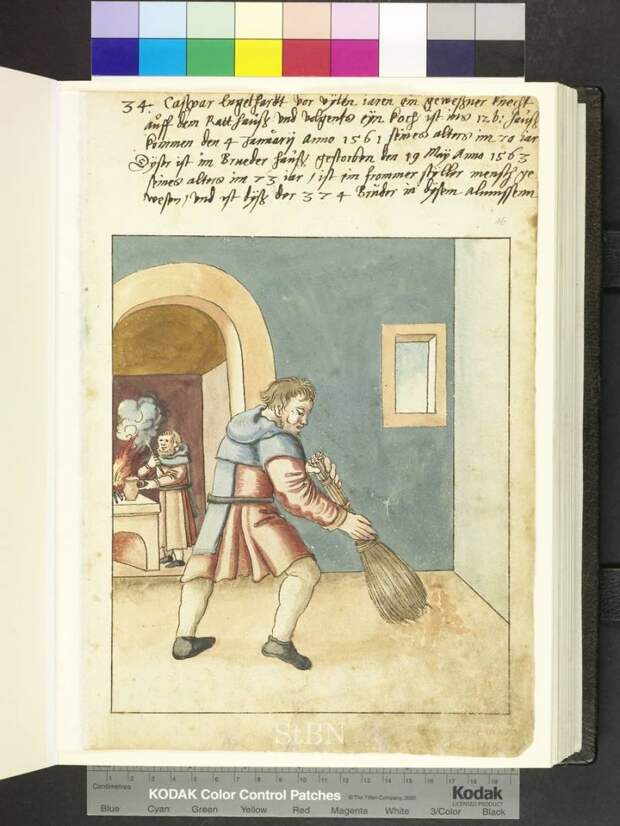 34. Caspar Engelhardt vor vylen iaren ein gewesner knecht
auff dem Ratt hauß vnd volgents eyn koch ist ins 12 b: hauß
kommen den 4 January Anno 1561 seines alters im 70 iar
Dyser ist im Brueder hauß gestorben den 19 May Anno 1563
seines alters im 73 iar / ist ein frommer styller mensch ge
wesen / vnd ist dyß der 374 Brüder in dysem almussenn
StBN
Centimetres 1 2 3 4 5 6 7 8 9 10 11 12 13 14 15 16 17 18 19
KODAK Color Control Patches © The Tiffen Company, 2000 Kodak
LICENSED PRODUCT
Blue Cyan Green Yellow Red Magenta White 3/Color Black